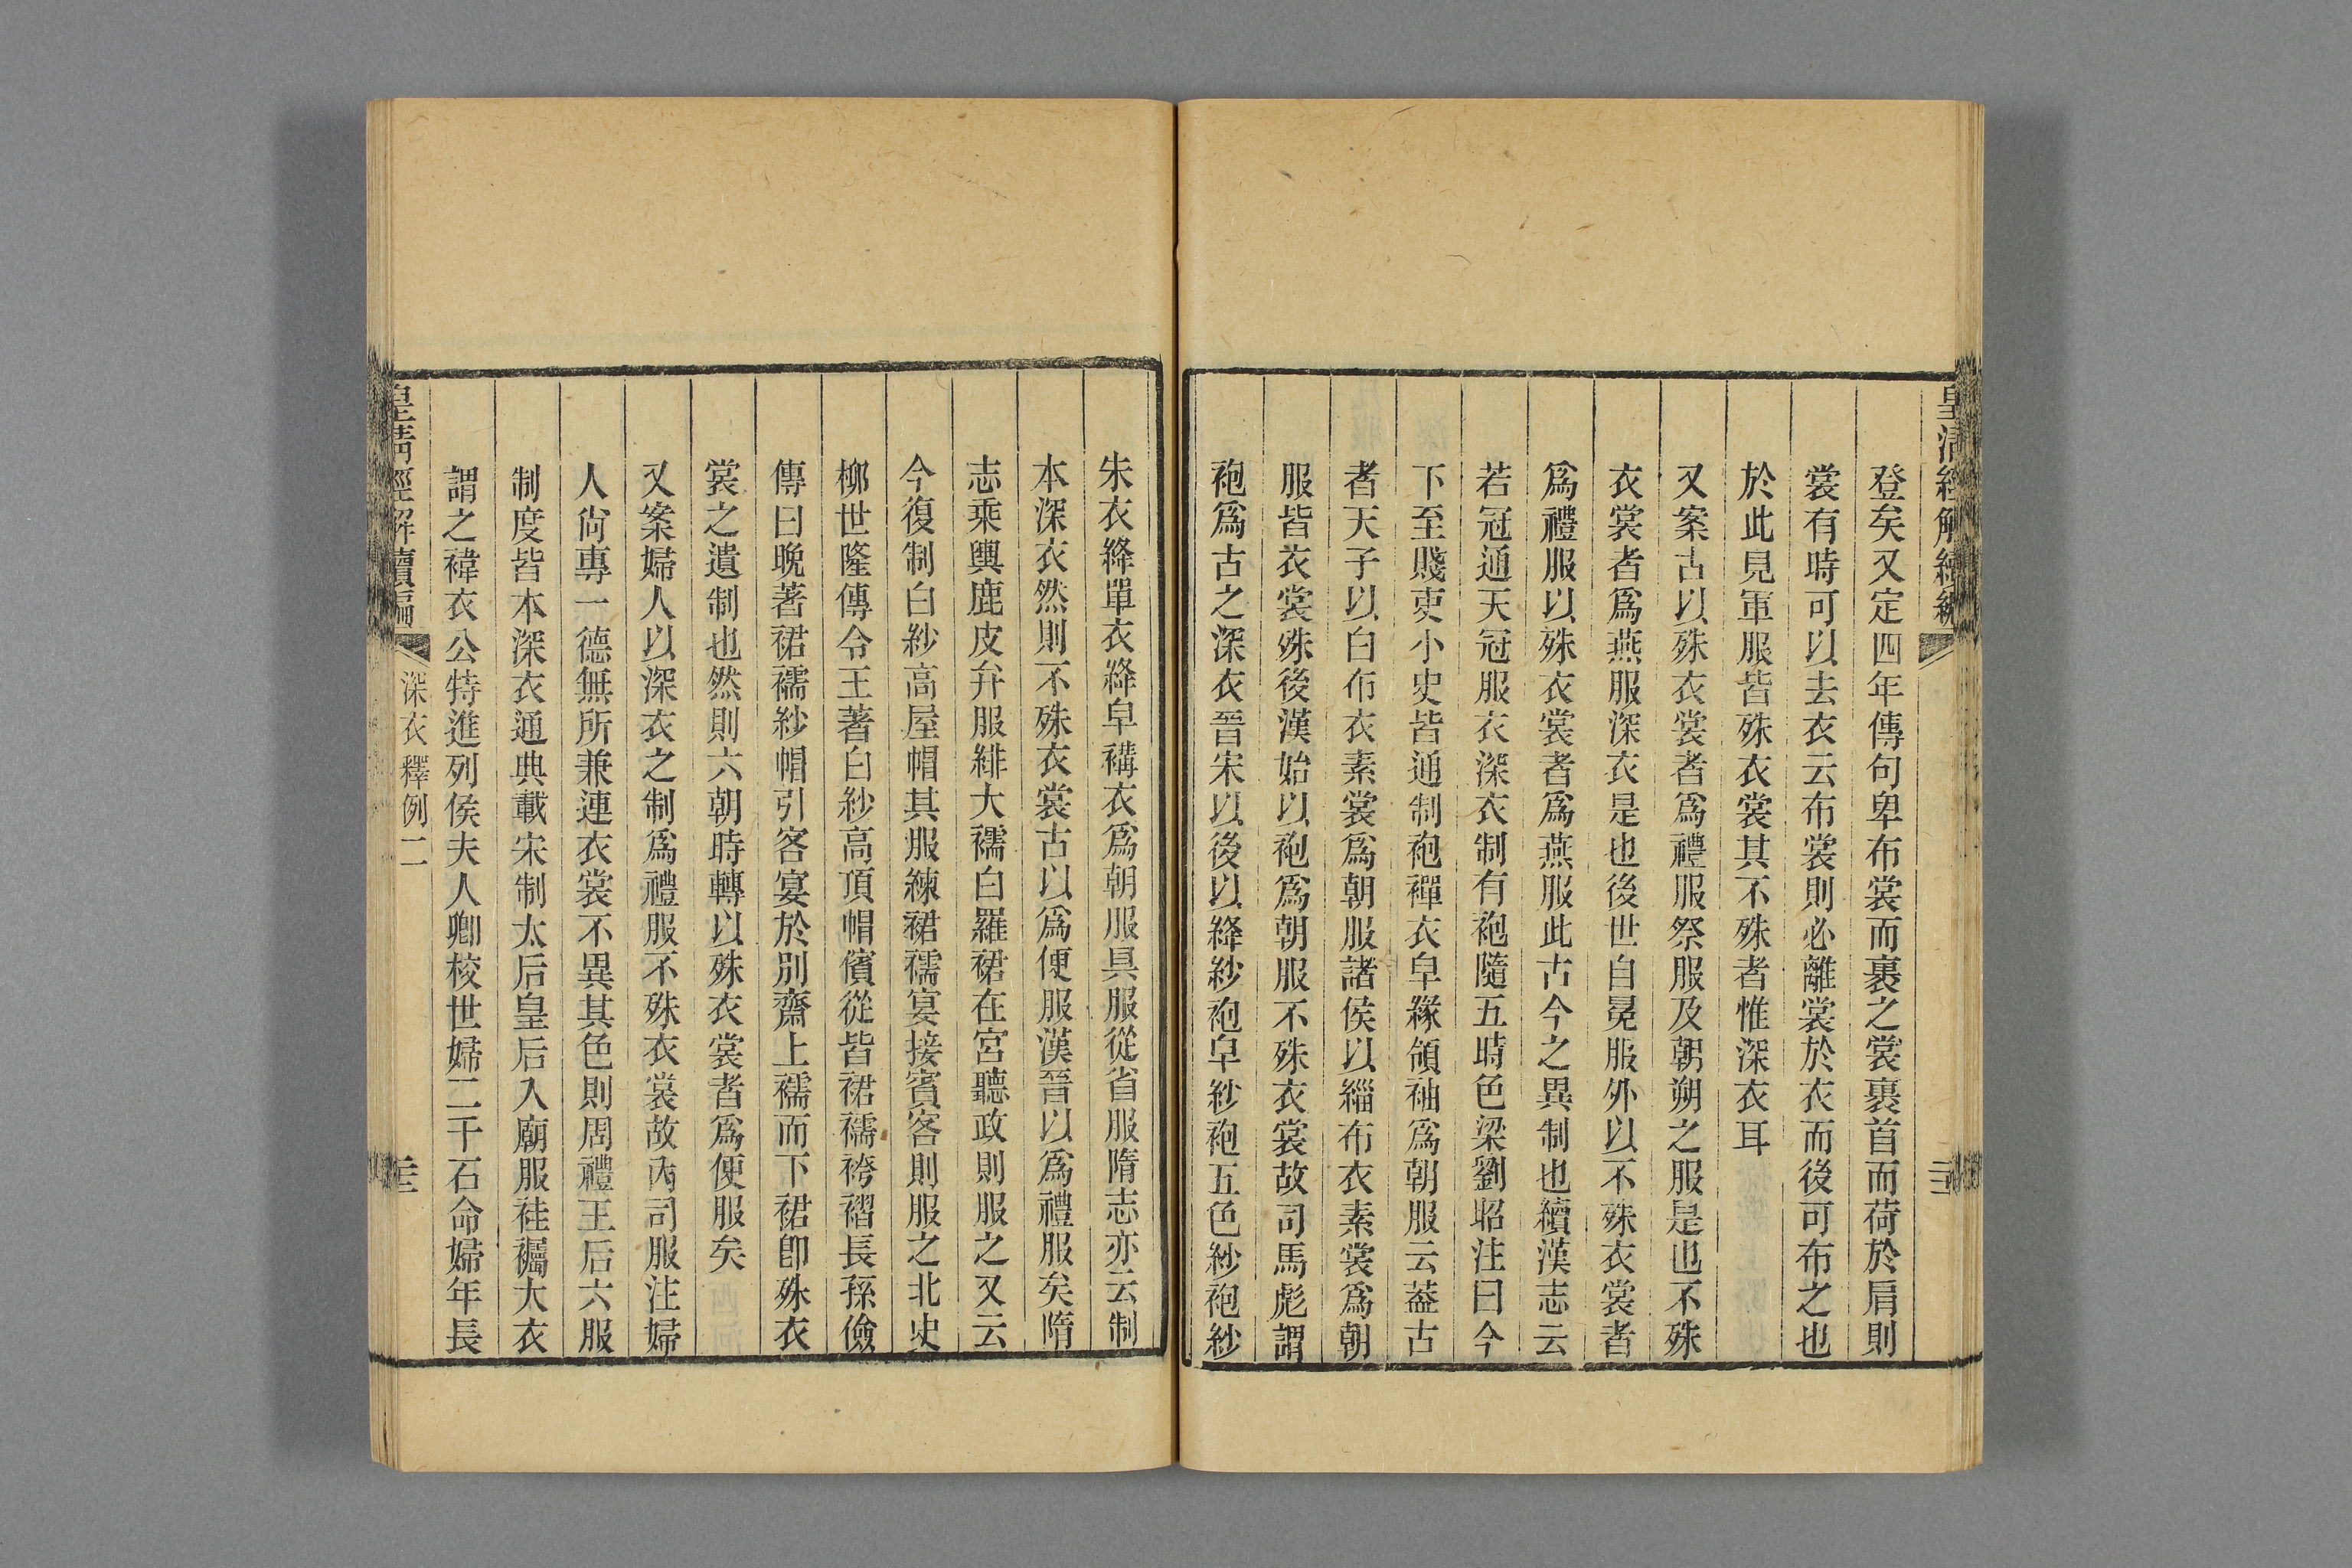 皇清經解續編
登矣又定四年傳句卑布裳而裹之裳裹首而荷於肩則
裳有時可以去衣云布裳則必離裳於衣而後可布之也
於此見軍服皆殊衣裳其不殊者惟深衣耳
又案古以殊衣裳者爲禮服祭服及朝朔之服是也不殊
衣裳者爲燕服深衣是也後世自冕服外以不殊衣裳者
爲禮服以殊衣裳者爲燕服此古今之異制也續漢志云
若冠通天冠服衣深衣制有袍隨五時色梁劉昭注曰今
下至賤吏小史皆通制袍襌衣皁緣領袖爲朝服云葢古
者天子以白布衣素裳爲朝服諸侯以緇布衣素裳爲朝
服皆衣裳殊後漢始以袍爲朝服不殊衣裳故司馬彪謂
袍爲古之深衣晉宋以後以絳紗袍皁紗袍五色紗袍紗
朱衣絳單衣絳皁褠衣爲朝服具服從省服隋志亦云制
本深衣然則不殊衣裳古以爲便服漢晉以爲禮服矣隋
志乘輿鹿皮弁服緋大襦白羅裙在宮聽政則服之又云
今復制白紗高屋帽其服練裙襦宴接賓客則服之北史
柳世隆傳令王著白紗高頂帽儐從皆裙襦袴褶長孫儉
傳曰晚著裙襦紗帽引客宴於別齋上襦而下裙卽殊衣
裳之遺制也然則六朝時轉以殊衣裳者爲便服矣
又案婦人以深衣之制爲禮服不殊衣裳故內司服注婦
人尙專一德無所兼連衣裳不異其色則周禮王后六服
制度皆本深衣通典載宋制太后皇后入廟服袿𧞫大衣
謂之褘衣公特進列侯夫人卿校世婦二千石命婦年長
皇清經解續編
深衣釋例二